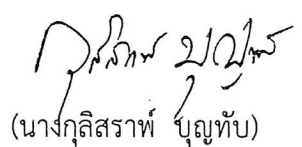 กุลิสราพ์ บุญทับ
(นางกุลิสราพ์ บุญทับ)